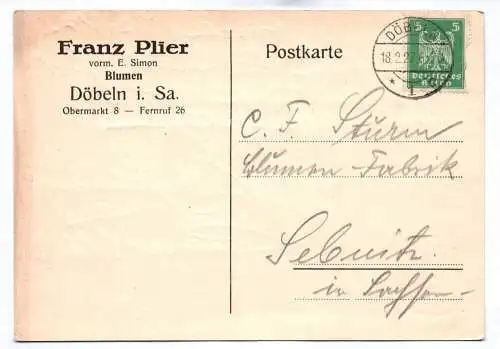 Franz Plier
vorm. E. Simon
Blumen
Döbeln i. Sa.
Obermarkt 8 — Fernruf 26
Postkarte
DÖB
18.2.27
* 1
5 5
Deutsches
Reich
C. F. Sturm
Blumen-Fabrik
Sebnitz
in Sachsen